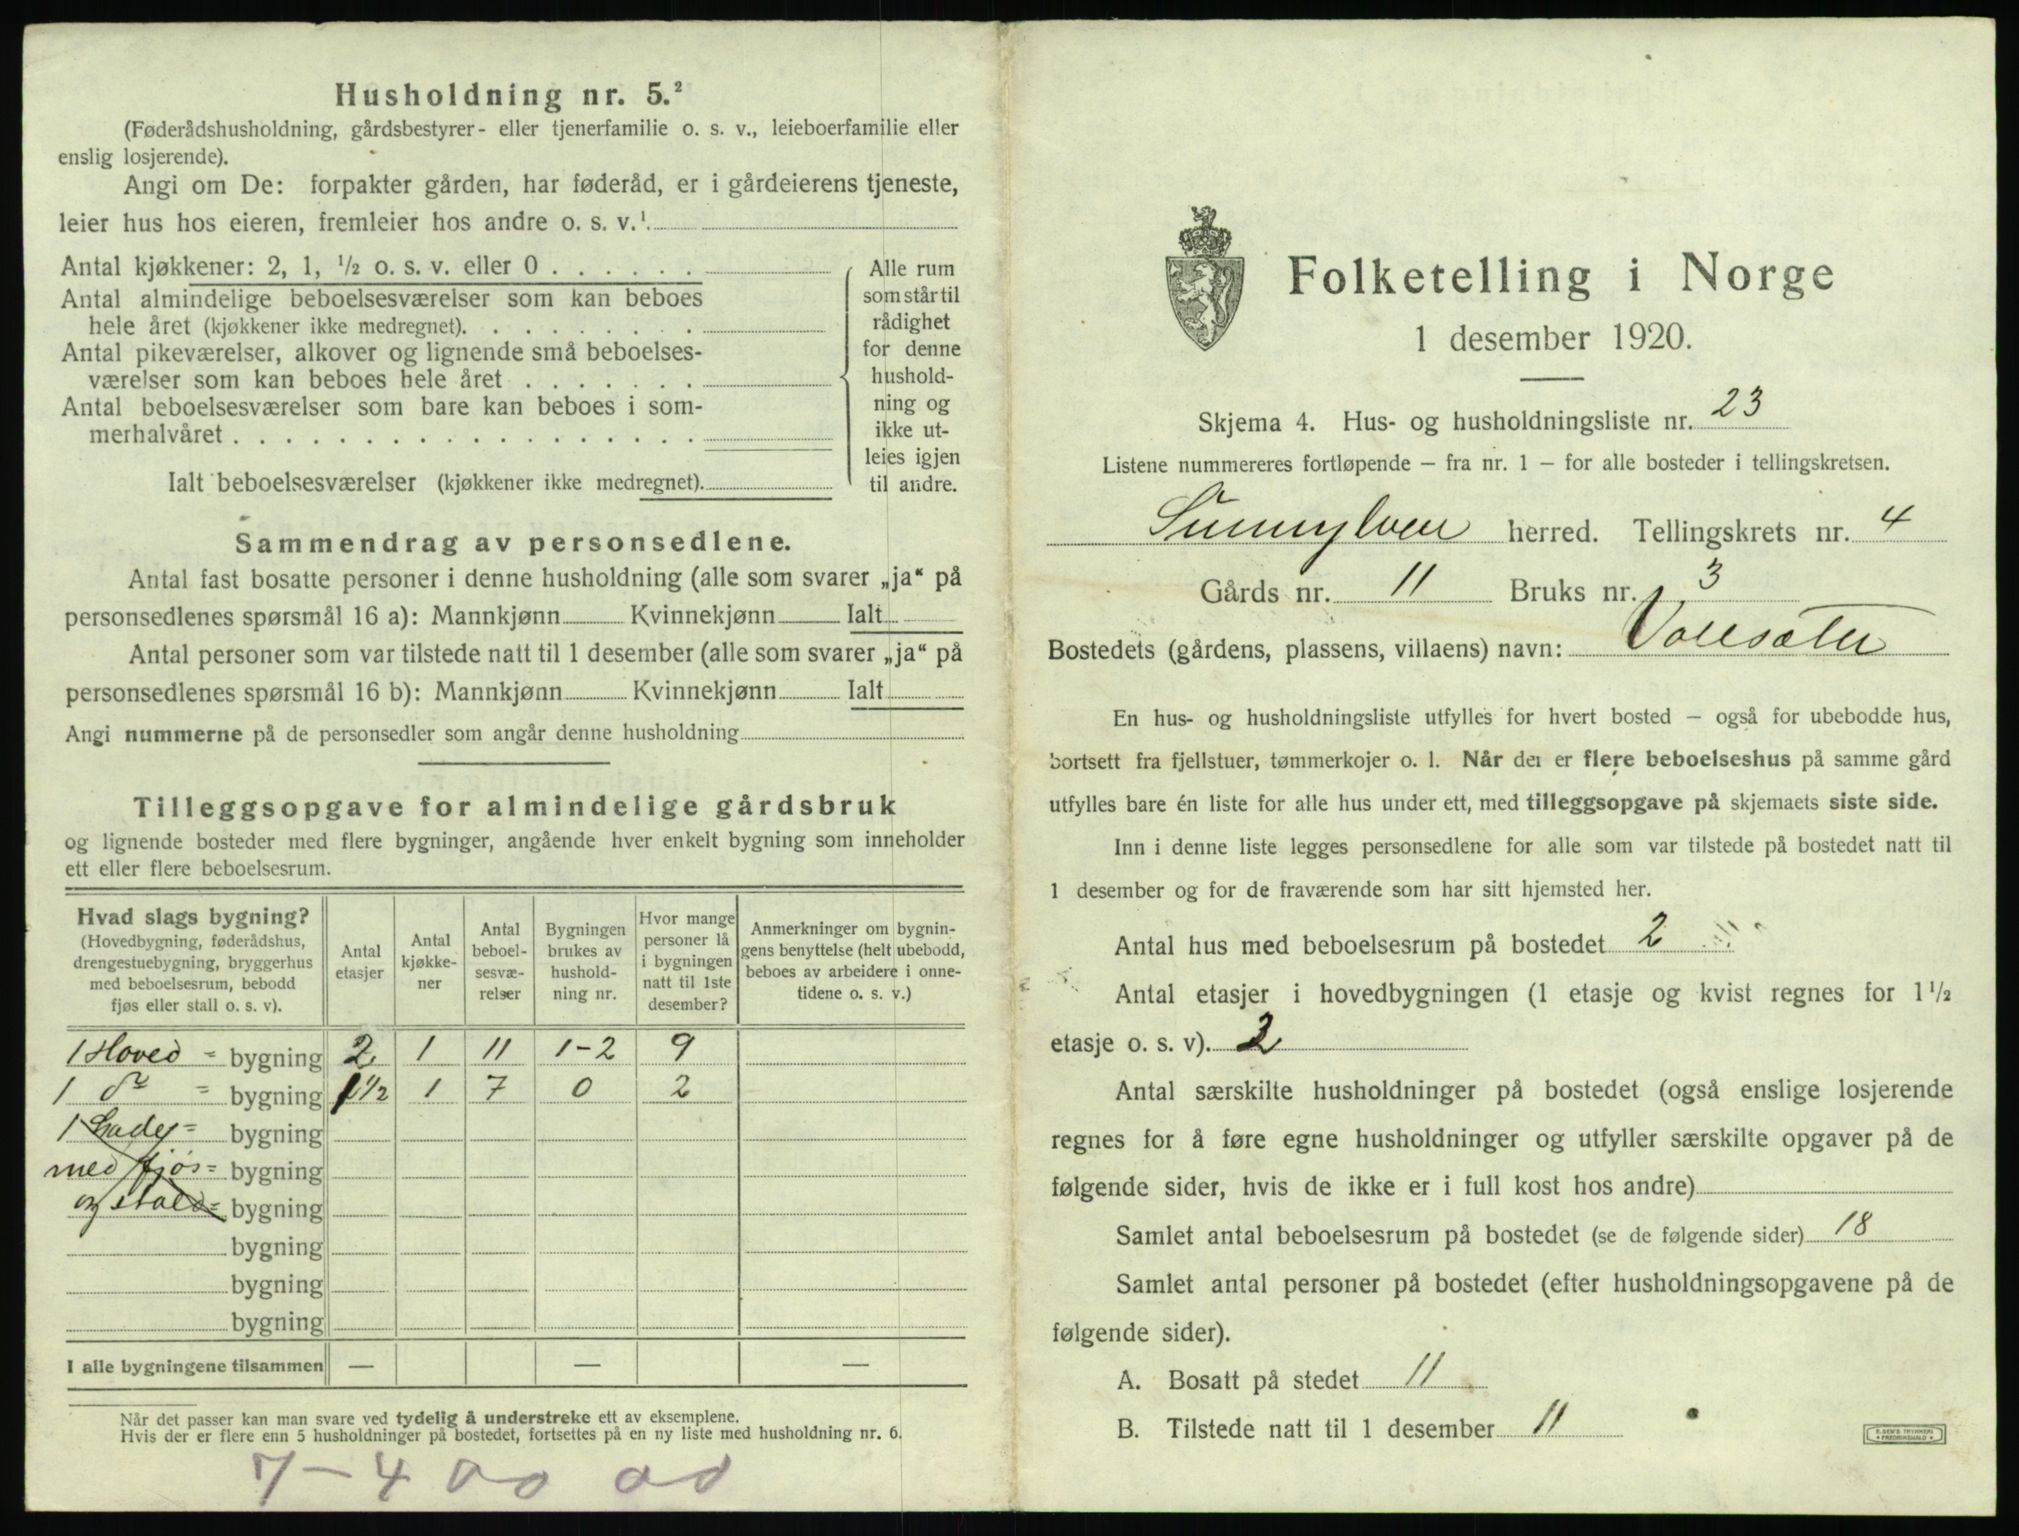 Husholdning nr. 5.²
(Føderådshusholdning, gårdsbestyrer- eller tjenerfamilie o. s. v., leieboerfamilie eller
enslig losjerende).
Angi om De: forpakter gården, har føderåd, er i gårdeierens tjeneste,
leier hus hos eieren, fremleier hos andre o. s. v.¹
Antal kjøkkener: 2, 1, ½ o. s. v. eller 0
Antal almindelige beboelsesværelser som kan beboes
hele året (kjøkkener ikke medregnet).
Antal pikeværelser, alkover og lignende små beboelses-
værelser som kan beboes hele året
Antal beboelsesværelser som bare kan beboes i som-
merhalvåret
Ialt beboelsesværelser (kjøkkener ikke medregnet).
Alle rum
som står til
rådighet
for denne
hushold-
ning og
ikke ut-
leies igjen
til andre.
Sammendrag av personsedlene.
Antal fast bosatte personer i denne husholdning (alle som svarer „ja“ på
personsedlenes spørsmål 16 a): Mannkjønn Kvinnekjønn Ialt
Antal personer som var tilstede natt til 1 desember (alle som svarer „ja“ på
personsedlenes spørsmål 16 b): Mannkjønn Kvinnekjønn Ialt
Angi nummerne på de personsedler som angår denne husholdning
Tilleggsopgave for almindelige gårdsbruk
og lignende bosteder med flere bygninger, angående hver enkelt bygning som inneholder
ett eller flere beboelsesrum.
Hvad slags bygning?
(Hovedbygning, føderådshus,
drengestuebygning, bryggerhus
med beboelsesrum, bebodd
fjøs eller stall o. s. v).
Antal
etasjer
Antal
kjøkke-
ner
Antal
beboel-
sesvæ-
relser
Bygningen
brukes av
hushold-
ning nr.
Hvor mange
personer lå
i bygningen
natt til 1ste
desember?
Anmerkninger om bygnin-
gens benyttelse (helt ubebodd,
beboes av arbeidere i onne-
tidene o. s. v.)
1 Hoved = bygning 2 1 11 1-2 9
1 do = bygning 1½ 1 7 0 2
1 Lade = bygning
med fjøs = bygning
og stald = bygning
bygning
bygning
bygning
I alle bygningene tilsammen — — —
Når det passer kan man svare ved tydelig å understreke ett av eksemplene.
Hvis der er flere enn 5 husholdninger på bostedet, fortsettes på en ny liste med husholdning nr. 6.
7-4 00 00
Folketelling i Norge
1 desember 1920.
Skjema 4. Hus- og husholdningsliste nr. 23
Listene nummereres fortløpende – fra nr. 1 – for alle bosteder i tellingskretsen.
Sunnylven herred. Tellingskrets nr. 4
Gårds nr. 11 Bruks nr. 3
Bostedets (gårdens, plassens, villaens) navn: Vollsæter
En hus- og husholdningsliste utfylles for hvert bosted – også for ubebodde hus,
bortsett fra fjellstuer, tømmerkojer o. l. Når der er flere beboelseshus på samme gård
utfylles bare én liste for alle hus under ett, med tilleggsopgave på skjemaets siste side.
Inn i denne liste legges personsedlene for alle som var tilstede på bostedet natt til
1 desember og for de fraværende som har sitt hjemsted her.
Antal hus med beboelsesrum på bostedet 2
Antal etasjer i hovedbygningen (1 etasje og kvist regnes for 1½
etasje o. s. v). 2
Antal særskilte husholdninger på bostedet (også enslige losjerende
regnes for å føre egne husholdninger og utfyller særskilte opgaver på de
følgende sider, hvis de ikke er i full kost hos andre)
Samlet antal beboelsesrum på bostedet (se de følgende sider) 18
Samlet antal personer på bostedet (efter husholdningsopgavene på de
følgende sider).
A. Bosatt på stedet 11
B. Tilstede natt til 1 desember 11